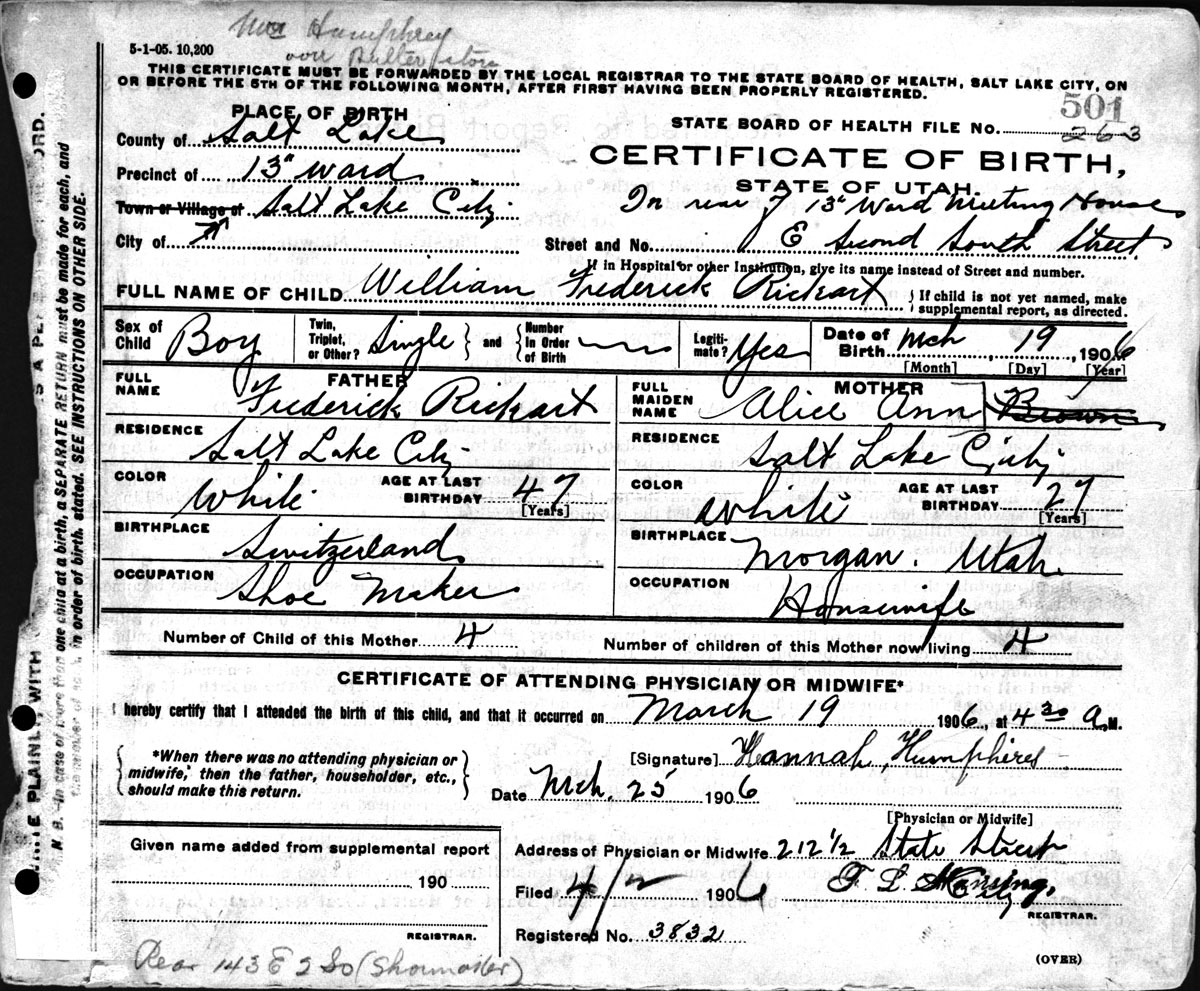 Mrs Humphrey
over Butter store
5-1-05. 10,200
THIS CERTIFICATE MUST BE FORWARDED BY THE LOCAL REGISTRAR TO THE STATE BOARD OF HEALTH, SALT LAKE CITY, ON
OR BEFORE THE 5TH OF THE FOLLOWING MONTH, AFTER FIRST HAVING BEEN PROPERLY REGISTERED.
PLACE OF BIRTH
501
STATE BOARD OF HEALTH FILE NO. 263
County of Salt Lake
CERTIFICATE OF BIRTH,
STATE OF UTAH.
Precinct of 13" Ward
Town or Village of Salt Lake City
In rear of 13" Ward Meeting House
City of
Street and No. E Second South Street
If in Hospital or other Institution, give its name instead of Street and number.
FULL NAME OF CHILD William Frederick Rickart
{ If child is not yet named, make
supplemental report, as directed.
Sex of Child Boy
Twin, Triplet, or Other? Single } and { Number In Order of Birth
Legiti-mate? Yes
Date of Birth Mch 19, 1906
[Month] [Day] [Year]
FATHER
FULL NAME Frederick Rickart
MOTHER
FULL MAIDEN NAME Alice Ann Brown
RESIDENCE Salt Lake City
RESIDENCE Salt Lake City
COLOR White AGE AT LAST BIRTHDAY 47 [Years]
COLOR White AGE AT LAST BIRTHDAY 27 [Years]
BIRTHPLACE Switzerland
BIRTHPLACE Morgan. Utah
OCCUPATION Shoe Maker
OCCUPATION Housewife
Number of Child of this Mother 4
Number of children of this Mother now living 4
CERTIFICATE OF ATTENDING PHYSICIAN OR MIDWIFE*
I hereby certify that I attended the birth of this child, and that it occurred on March 19 1906, at 4 30 A.M.
{ *When there was no attending physician or
midwife, then the father, householder, etc.,
should make this return. }
[Signature] Hannah Humphires
Date Mch. 25 1906
[Physician or Midwife]
Given name added from supplemental report
190
REGISTRAR.
Address of Physician or Midwife 212 1/2 State Street
City
Filed 4/2 1906
F. L.
REGISTRAR.
Registered No. 3832
(OVER)
Rear 143 E 2 So (Shomaker)
WRITE PLAINLY WITH
IS A PE
ORD.
N. B. In case of more than one child at a birth, a SEPARATE RETURN must be made for each, and
the number of
in order of birth, stated. SEE INSTRUCTIONS ON OTHER SIDE.